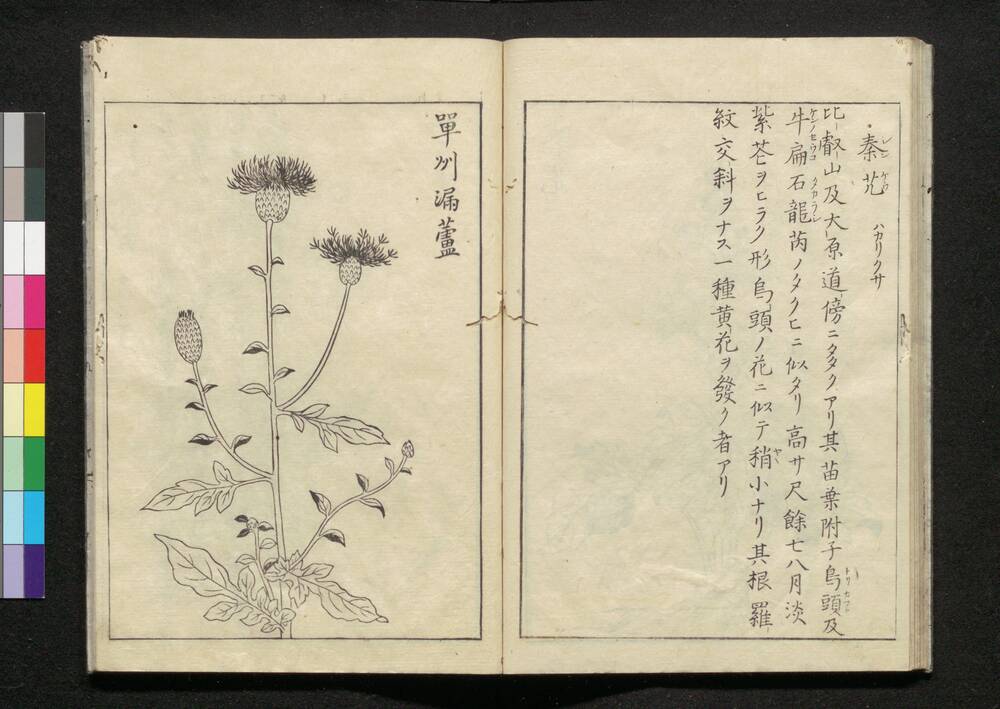 秦艽 ハカリクサ
比叡山及大原道傍ニタクアリ其苗葉附子烏頭及
牛扁石龍芮ノタクヒニ似タリ高サ尺餘七八月淡
紫苍ヲヒラク形烏頭ノ花ニ似テ稍小ナリ其根羅
紋交斜ヲナス一種黄花ヲ發ク者アリ
單州漏蘆